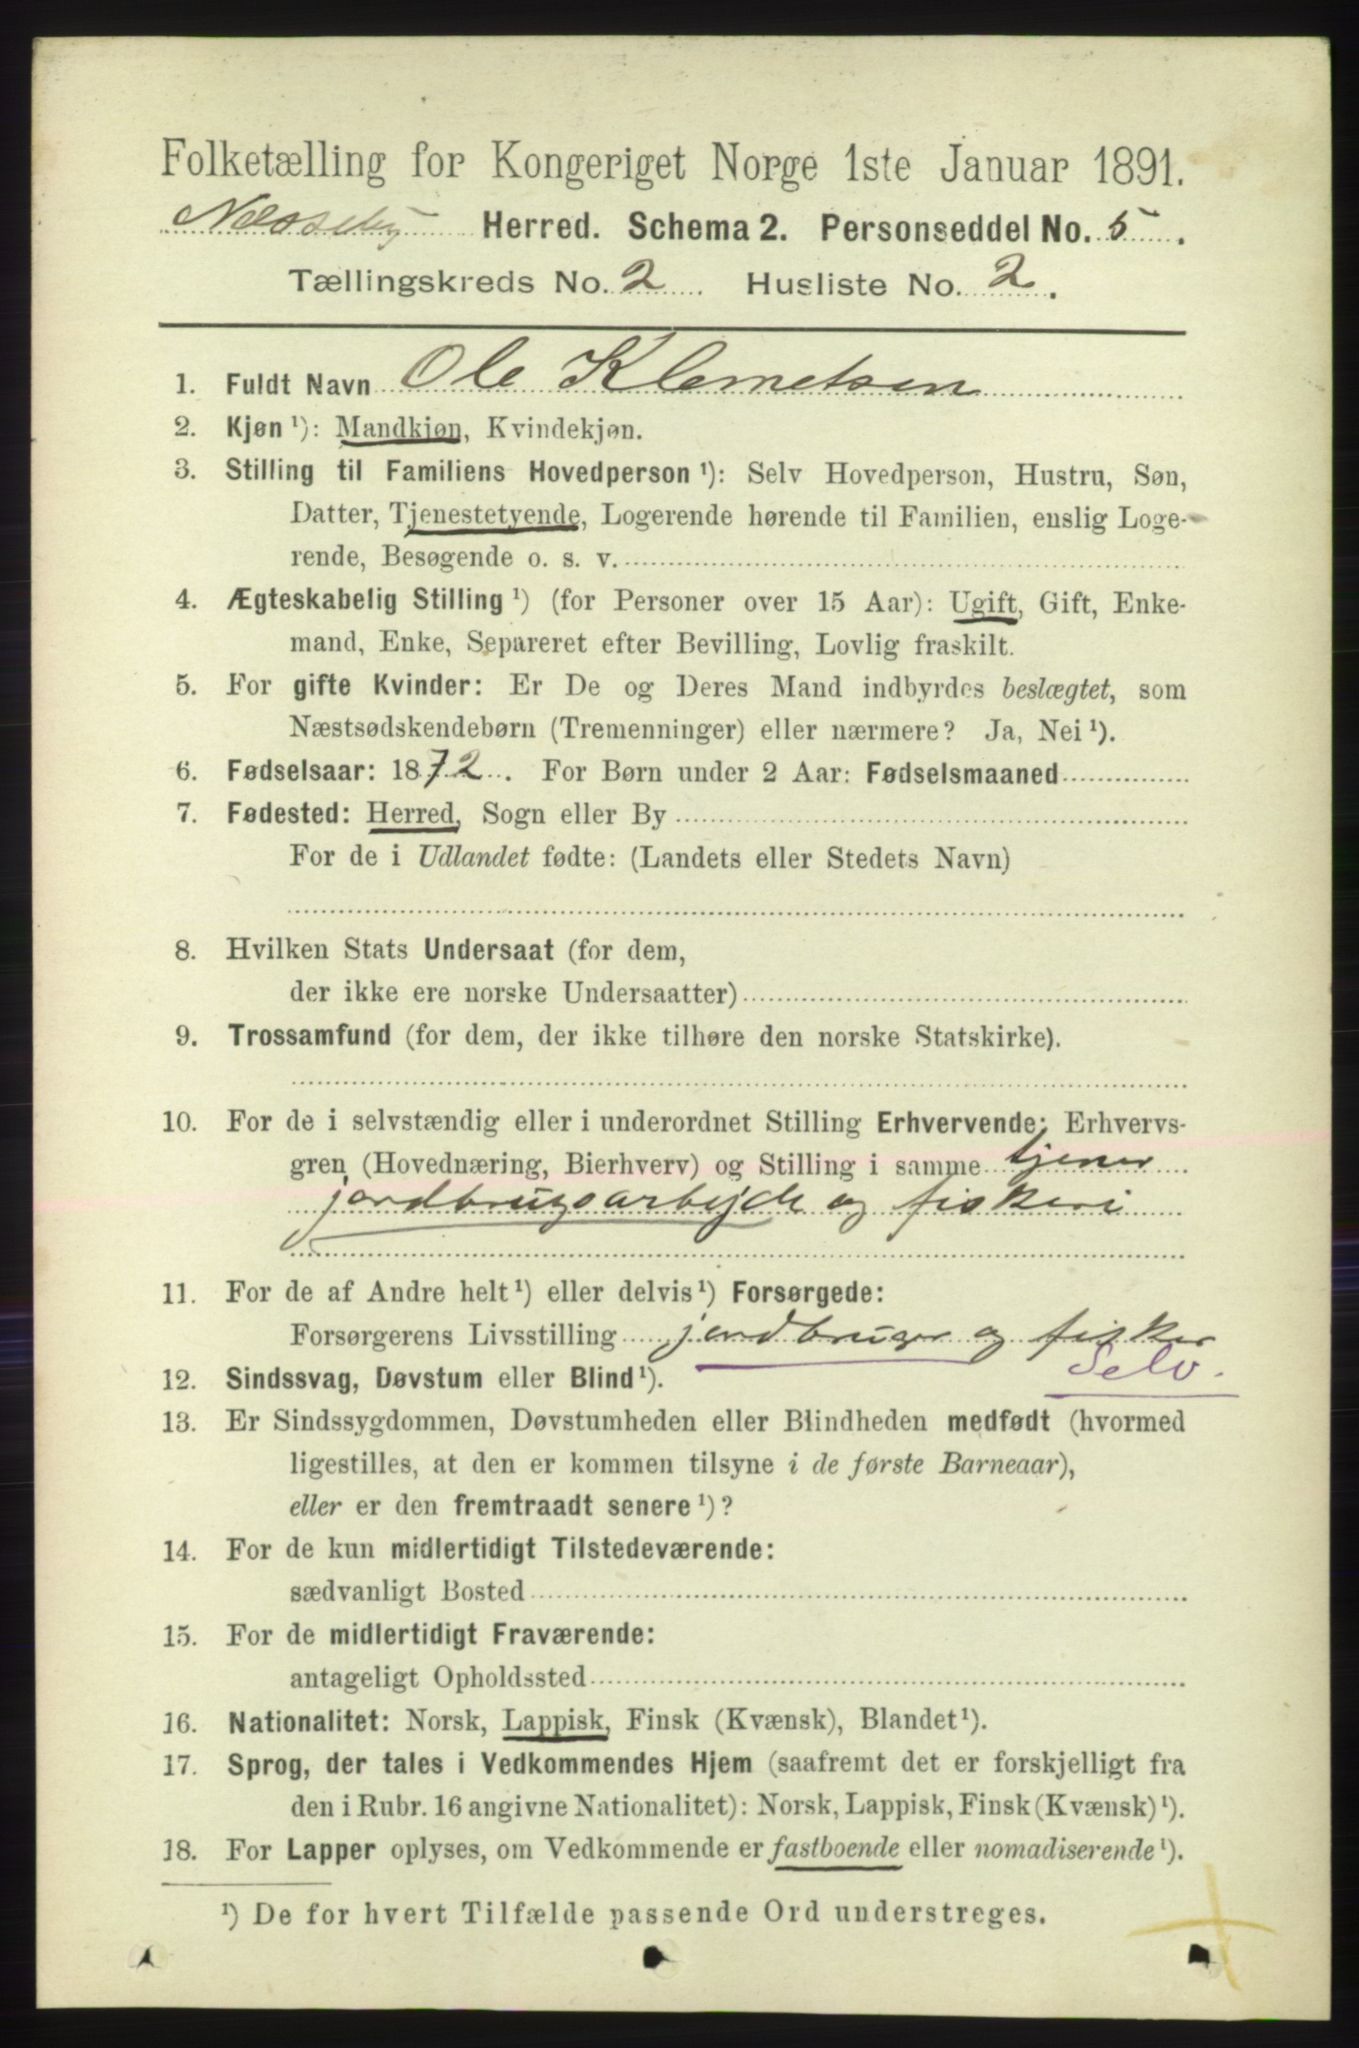 Folketælling for Kongeriget Norge 1ste Januar 1891.
Nesseby Herred. Schema 2. Personseddel No. 5.
Tællingskreds No. 2 Husliste No. 2.
1. Fuldt Navn Ole Klemetsen
2. Kjøn ¹): Mandkjøn, Kvindekjøn.
3. Stilling til Familiens Hovedperson ¹): Selv Hovedperson, Hustru, Søn,
Datter, Tjenestetyende, Logerende hørende til Familien, enslig Loge-
rende, Besøgende o. s. v.
4. Ægteskabelig Stilling ¹) (for Personer over 15 Aar): Ugift, Gift, Enke-
mand, Enke, Separeret efter Bevilling, Lovlig fraskilt.
5. For gifte Kvinder: Er De og Deres Mand indbyrdes beslægtet, som
Næstsødskendebørn (Tremenninger) eller nærmere? Ja, Nei ¹).
6. Fødselsaar: 1872. For Børn under 2 Aar: Fødselsmaaned
7. Fødested: Herred, Sogn eller By
For de i Udlandet fødte: (Landets eller Stedets Navn)
8. Hvilken Stats Undersaat (for dem,
der ikke ere norske Undersaatter)
9. Trossamfund (for dem, der ikke tilhøre den norske Statskirke).
10. For de i selvstændig eller i underordnet Stilling Erhvervende: Erhvervs-
gren (Hovednæring, Bierhverv) og Stilling i samme tjener
jordbrugsarbejde og fiskeri
11. For de af Andre helt ¹) eller delvis ¹) Forsørgede:
Forsørgerens Livsstilling jordbruger og fisker
Selv.
12. Sindssvag, Døvstum eller Blind ¹).
13. Er Sindssygdommen, Døvstumheden eller Blindheden medfødt (hvormed
ligestilles, at den er kommen tilsyne i de første Barneaar),
eller er den fremtraadt senere ¹)?
14. For de kun midlertidigt Tilstedeværende:
sædvanligt Bosted
15. For de midlertidigt Fraværende:
antageligt Opholdssted
16. Nationalitet: Norsk, Lappisk, Finsk (Kvænsk), Blandet ¹).
17. Sprog, der tales i Vedkommendes Hjem (saafremt det er forskjelligt fra
den i Rubr. 16 angivne Nationalitet): Norsk, Lappisk, Finsk (Kvænsk) ¹).
18. For Lapper oplyses, om Vedkommende er fastboende eller nomadiserende ¹).
¹) De for hvert Tilfælde passende Ord understreges.